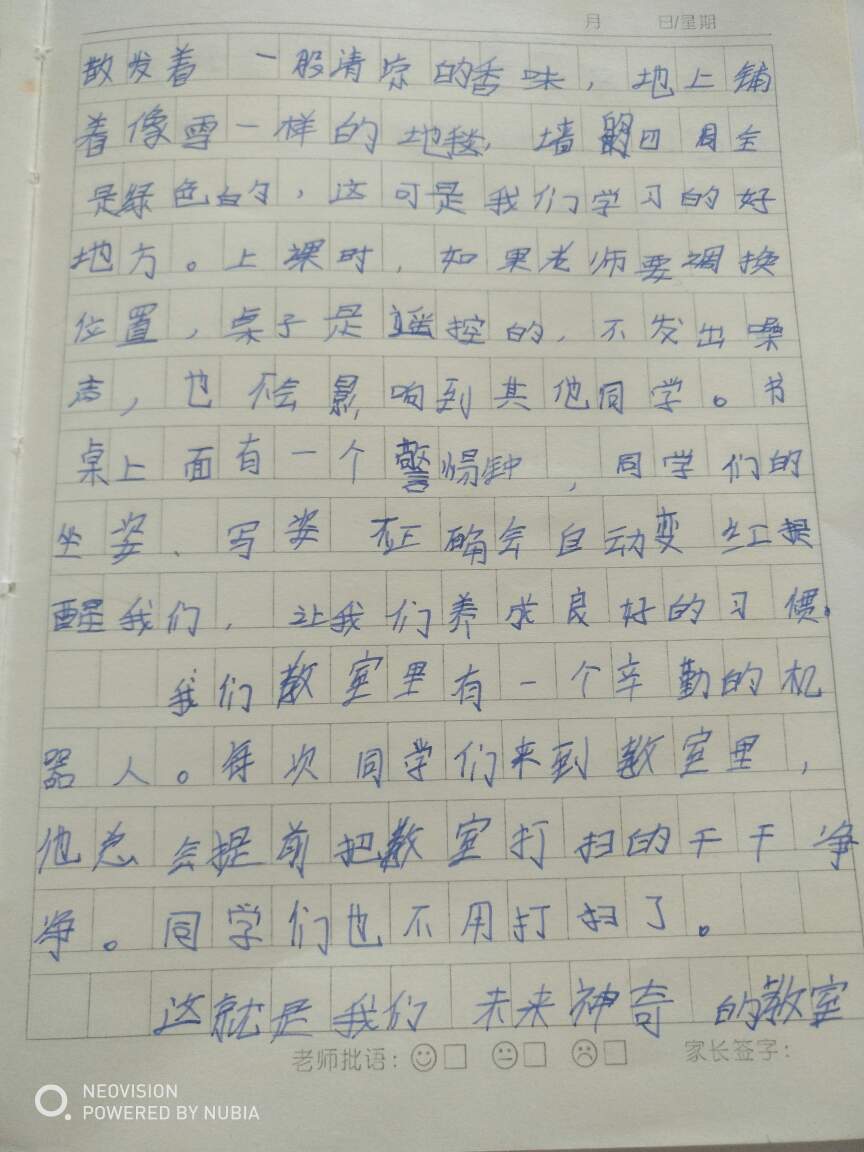 月 日/星期
散发着一股清凉的香味，地上铺
着像雪一样的地毯，墙的四周全
是绿色的，这可是我们学习的好
地方。上课时，如果老师要调换
位置，桌子是遥控的，不发出噪
声，也不会影响到其他同学。书
桌上面有一个警惕钟，同学们的
坐姿、写姿不正确会自动变红提
醒我们，让我们养求良好的习惯。
我们教室里有一个辛勤的机
器人。每次同学们来到教室里，
他总会提前把教室打扫的干干净
净。同学们也不用打扫了。
这就是我们未来神奇的教室
老师批语： 家长签字：
NEOVISION
POWERED BY NUBIA